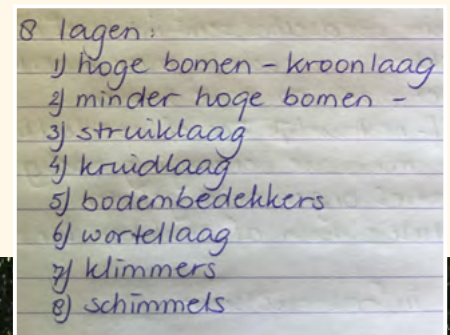 8 lagen:
1) hoge bomen - kroonlaag
2) minder hoge bomen -
3) struiklaag
4) kruidlaag
5) bodembedekkers
6) wortellaag
7) klimmers
8) schimmels